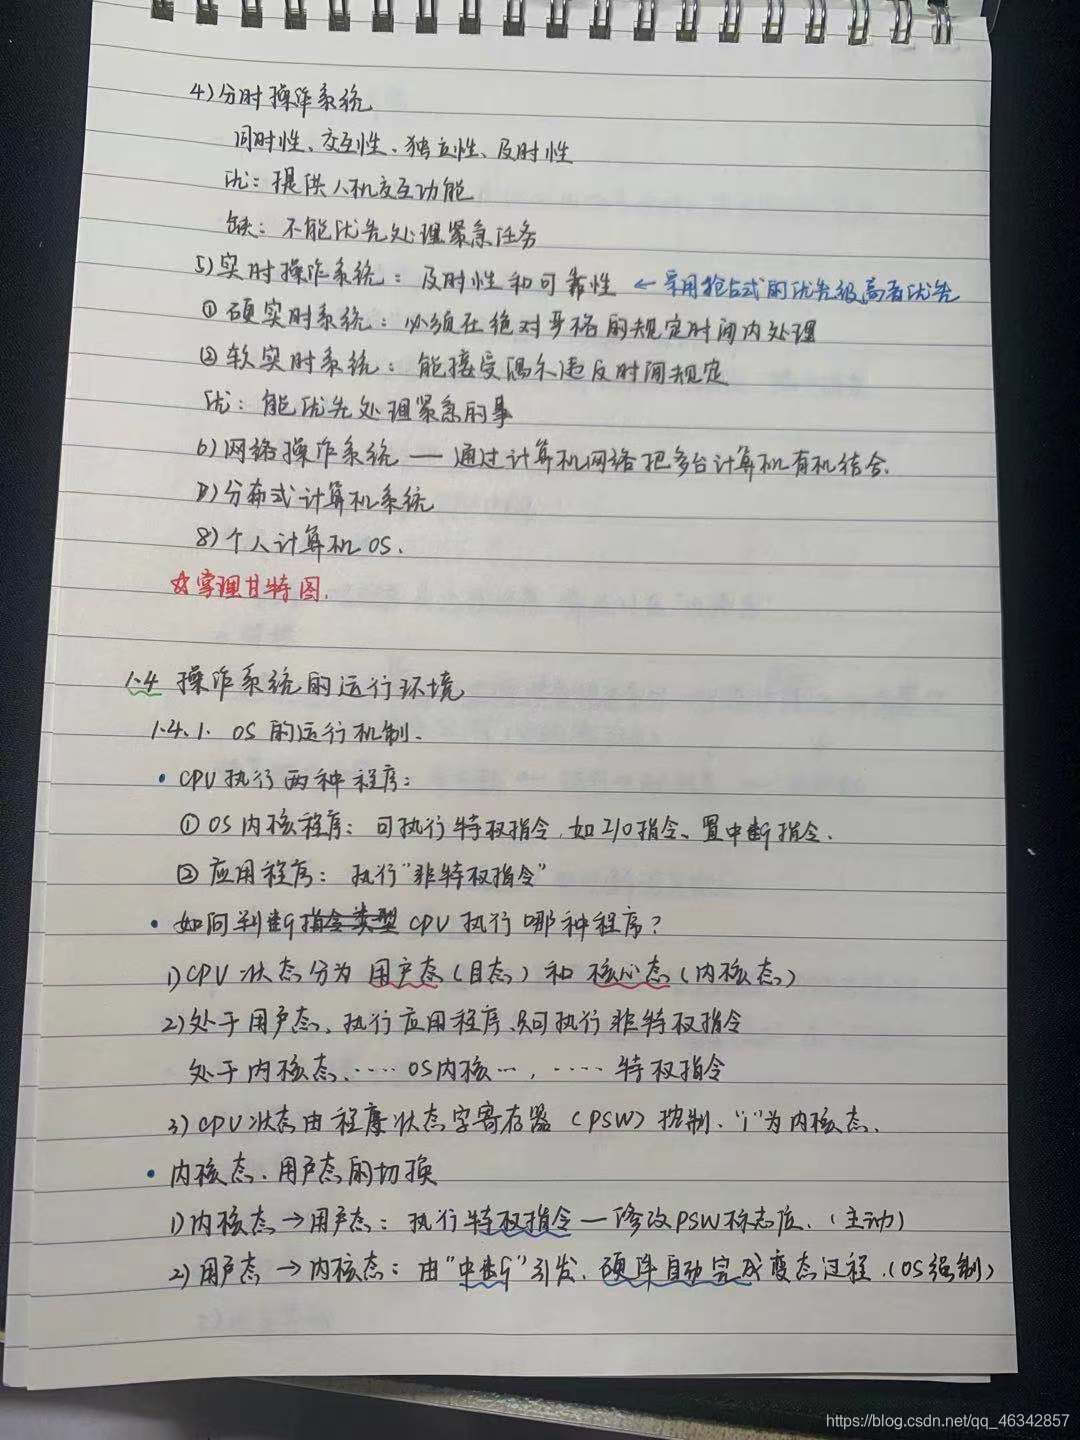 4)分时操作系统
同时性、交互性、独立性、及时性
优：提供人机交互功能
缺：不能优先处理紧急任务
5)实时操作系统：及时性和可靠性 ←采用抢占式的优先级高者优先
①硬实时系统：必须在绝对严格的规定时间内处理
②软实时系统：能接受偶尔违反时间规定
优：能优先处理紧急的事
6)网络操作系统 — 通过计算机网络把多台计算机有机结合.
7)分布式计算机系统
8)个人计算机OS.
☆掌握甘特图.
1.4 操作系统的运行环境
1.4.1. OS的运行机制.
• CPU执行两种程序：
①OS内核程序：可执行特权指令,如I/O指令、置中断指令.
②应用程序：执行"非特权指令"
• 如何判断指令类型CPU执行哪种程序?
1)CPU状态分为用户态(目态)和核心态(内核态)
2)处于用户态,执行应用程序,只可执行非特权指令
处于内核态,····OS内核··,·····特权指令
3)CPU状态由程序状态字寄存器(PSW)控制."1"为内核态.
• 内核态、用户态的切换
1)内核态→用户态：执行特权指令—修改PSW标志位.(主动)
2)用户态→内核态：由"中断"引发,硬件自动完成变态过程.(OS强制)
https://blog.csdn.net/qq_46342857